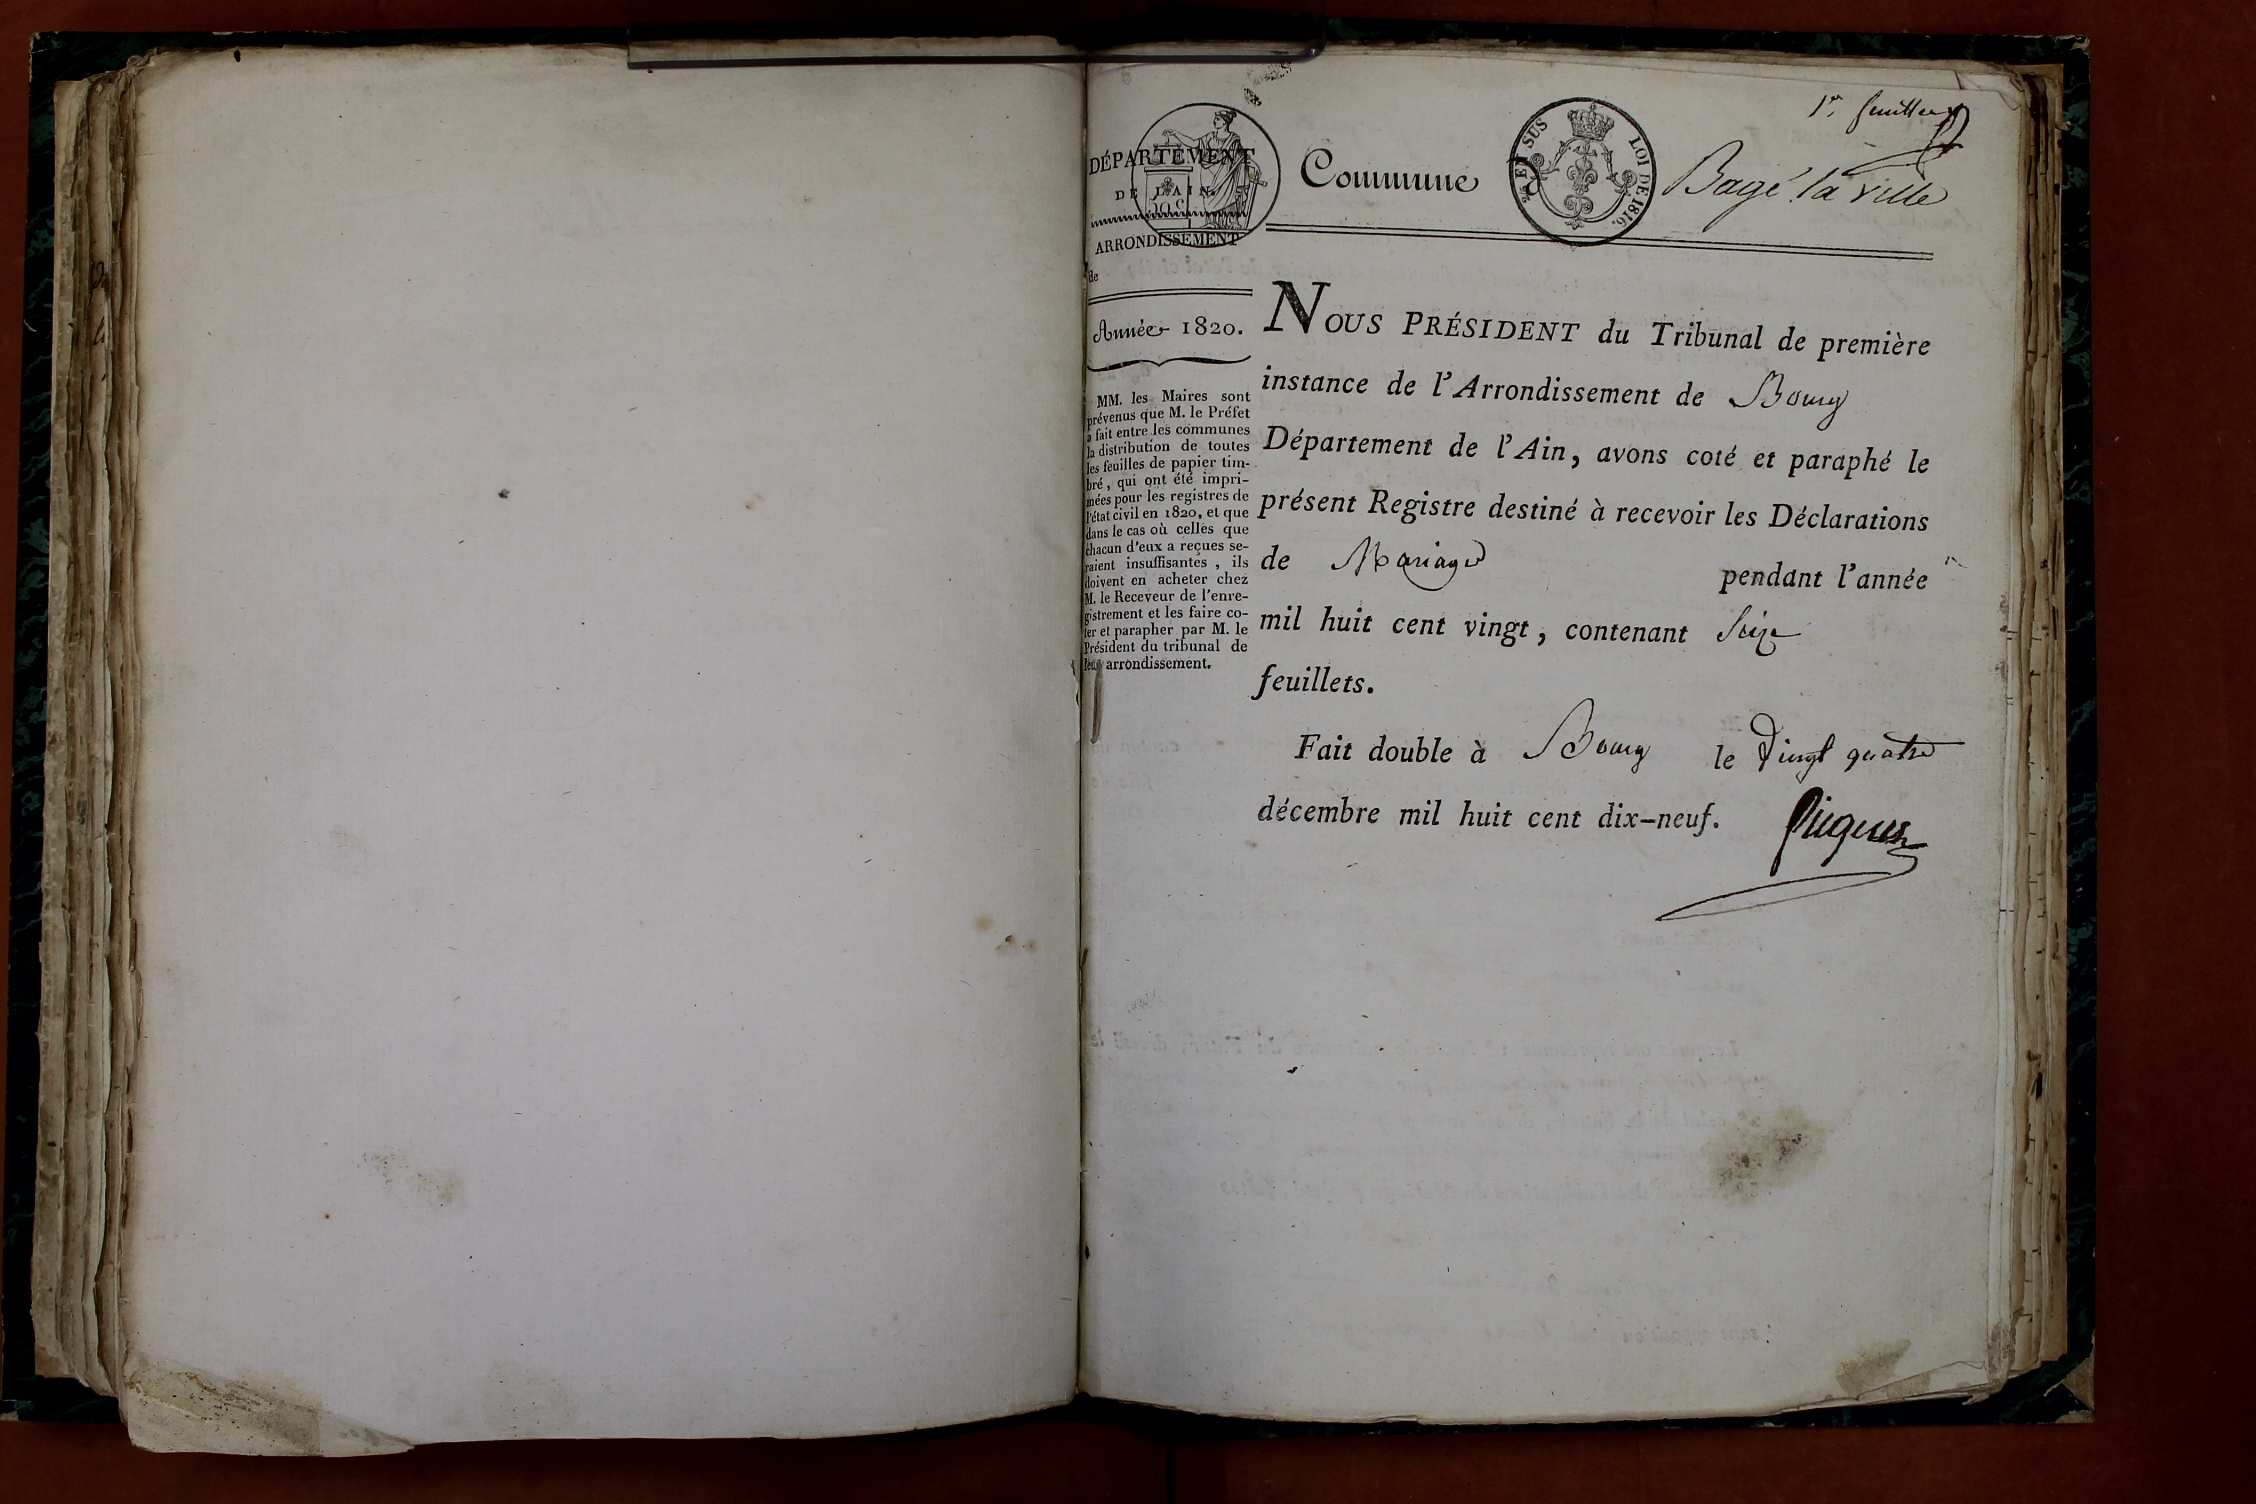 1er feuillet
DÉPARTEMENT
DE L'AIN.
10 C
ARRONDISSEMENT
de
Commune d
EN SUS LOI DE 1816.
Bagé la ville
Année 1820.
MM. les Maires sont
prévenus que M. le Préfet
a fait entre les communes
la distribution de toutes
les feuilles de papier tim-
bré, qui ont été impri-
mées pour les registres de
l'état civil en 1820, et que
dans le cas où celles que
chacun d'eux a reçues se-
raient insuffisantes, ils
doivent en acheter chez
M. le Receveur de l'enre-
gistrement et les faire co-
ter et parapher par M. le
Président du tribunal de
leur arrondissement.
NOUS PRÉSIDENT du Tribunal de première
instance de l'Arrondissement de Bourg
Département de l'Ain, avons coté et paraphé le
présent Registre destiné à recevoir les Déclarations
de Mariages pendant l'année
mil huit cent vingt, contenant Seize
feuillets.
Fait double à Bourg le vingt quatre
décembre mil huit cent dix-neuf.